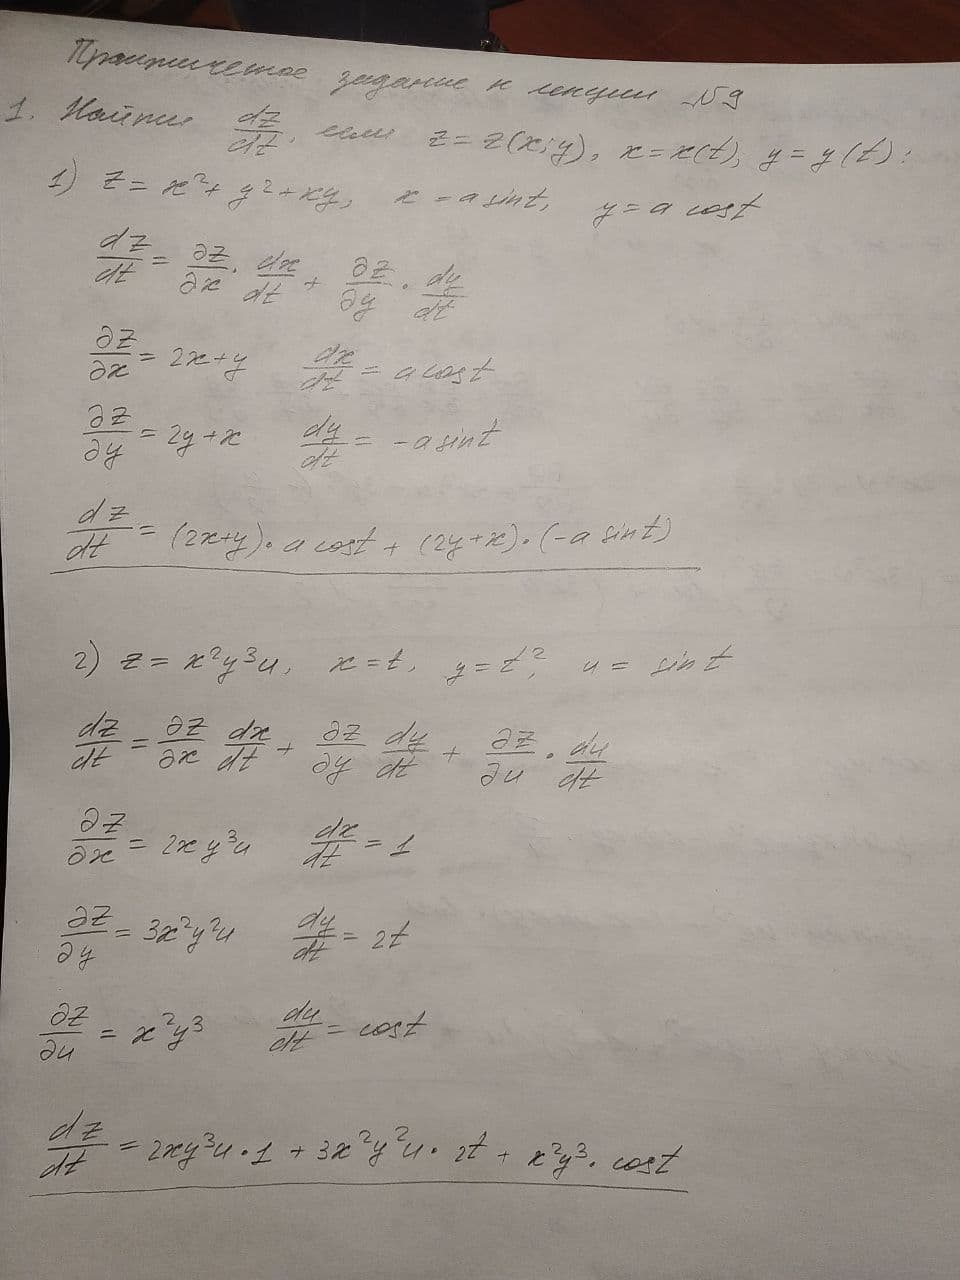 Практическое задание к лекции №9
1. Найти dz/dt, если z = z(x;y), x = x(t), y = y(t):
1) z = x² + y² + xy, x = a sint, y = a cost
dz/dt = ∂z/∂x · dx/dt + ∂z/∂y · dy/dt
∂z/∂x = 2x+y dx/dt = a cost
∂z/∂y = 2y+x dy/dt = -a sint
dz/dt = (2x+y)· a cost + (2y+x)·(-a sint)
2) z = x²y³u, x = t, y = t², u = sint
dz/dt = ∂z/∂x dx/dt + ∂z/∂y dy/dt + ∂z/∂u · du/dt
∂z/∂x = 2xy³u dx/dt = 1
∂z/∂y = 3x²y²u dy/dt = 2t
∂z/∂u = x²y³ du/dt = cost
dz/dt = 2xy³u·1 + 3x²y²u·2t + x²y³·cost